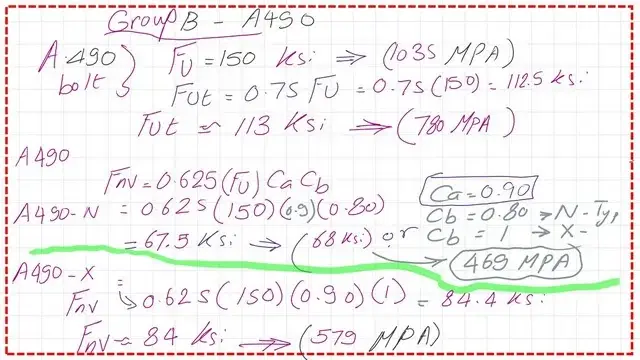 Group B - A490
A.490 bolt } FU = 150 Ksi ⇒ (1035 MPA)
Fut = 0.75 FU = 0.75(150) = 112.5 Ksi
Fut ≈ 113 Ksi ⇒ (780 MPA)
A490
Fnv = 0.625 (FU) Ca Cb
Ca = 0.90
A490-N = 0.625 (150)(0.9)(0.80)
Cb = 0.80 → N-Ty,
= 67.5 Ksi → (68 Ksi) or
Cb = 1 → X-
469 MPA
A490-X =
Fnv → 0.625 (150)(0.90)(1) = 84.4 Ksi
Fnv ≈ 84 Ksi ⇒ (579 MPA)